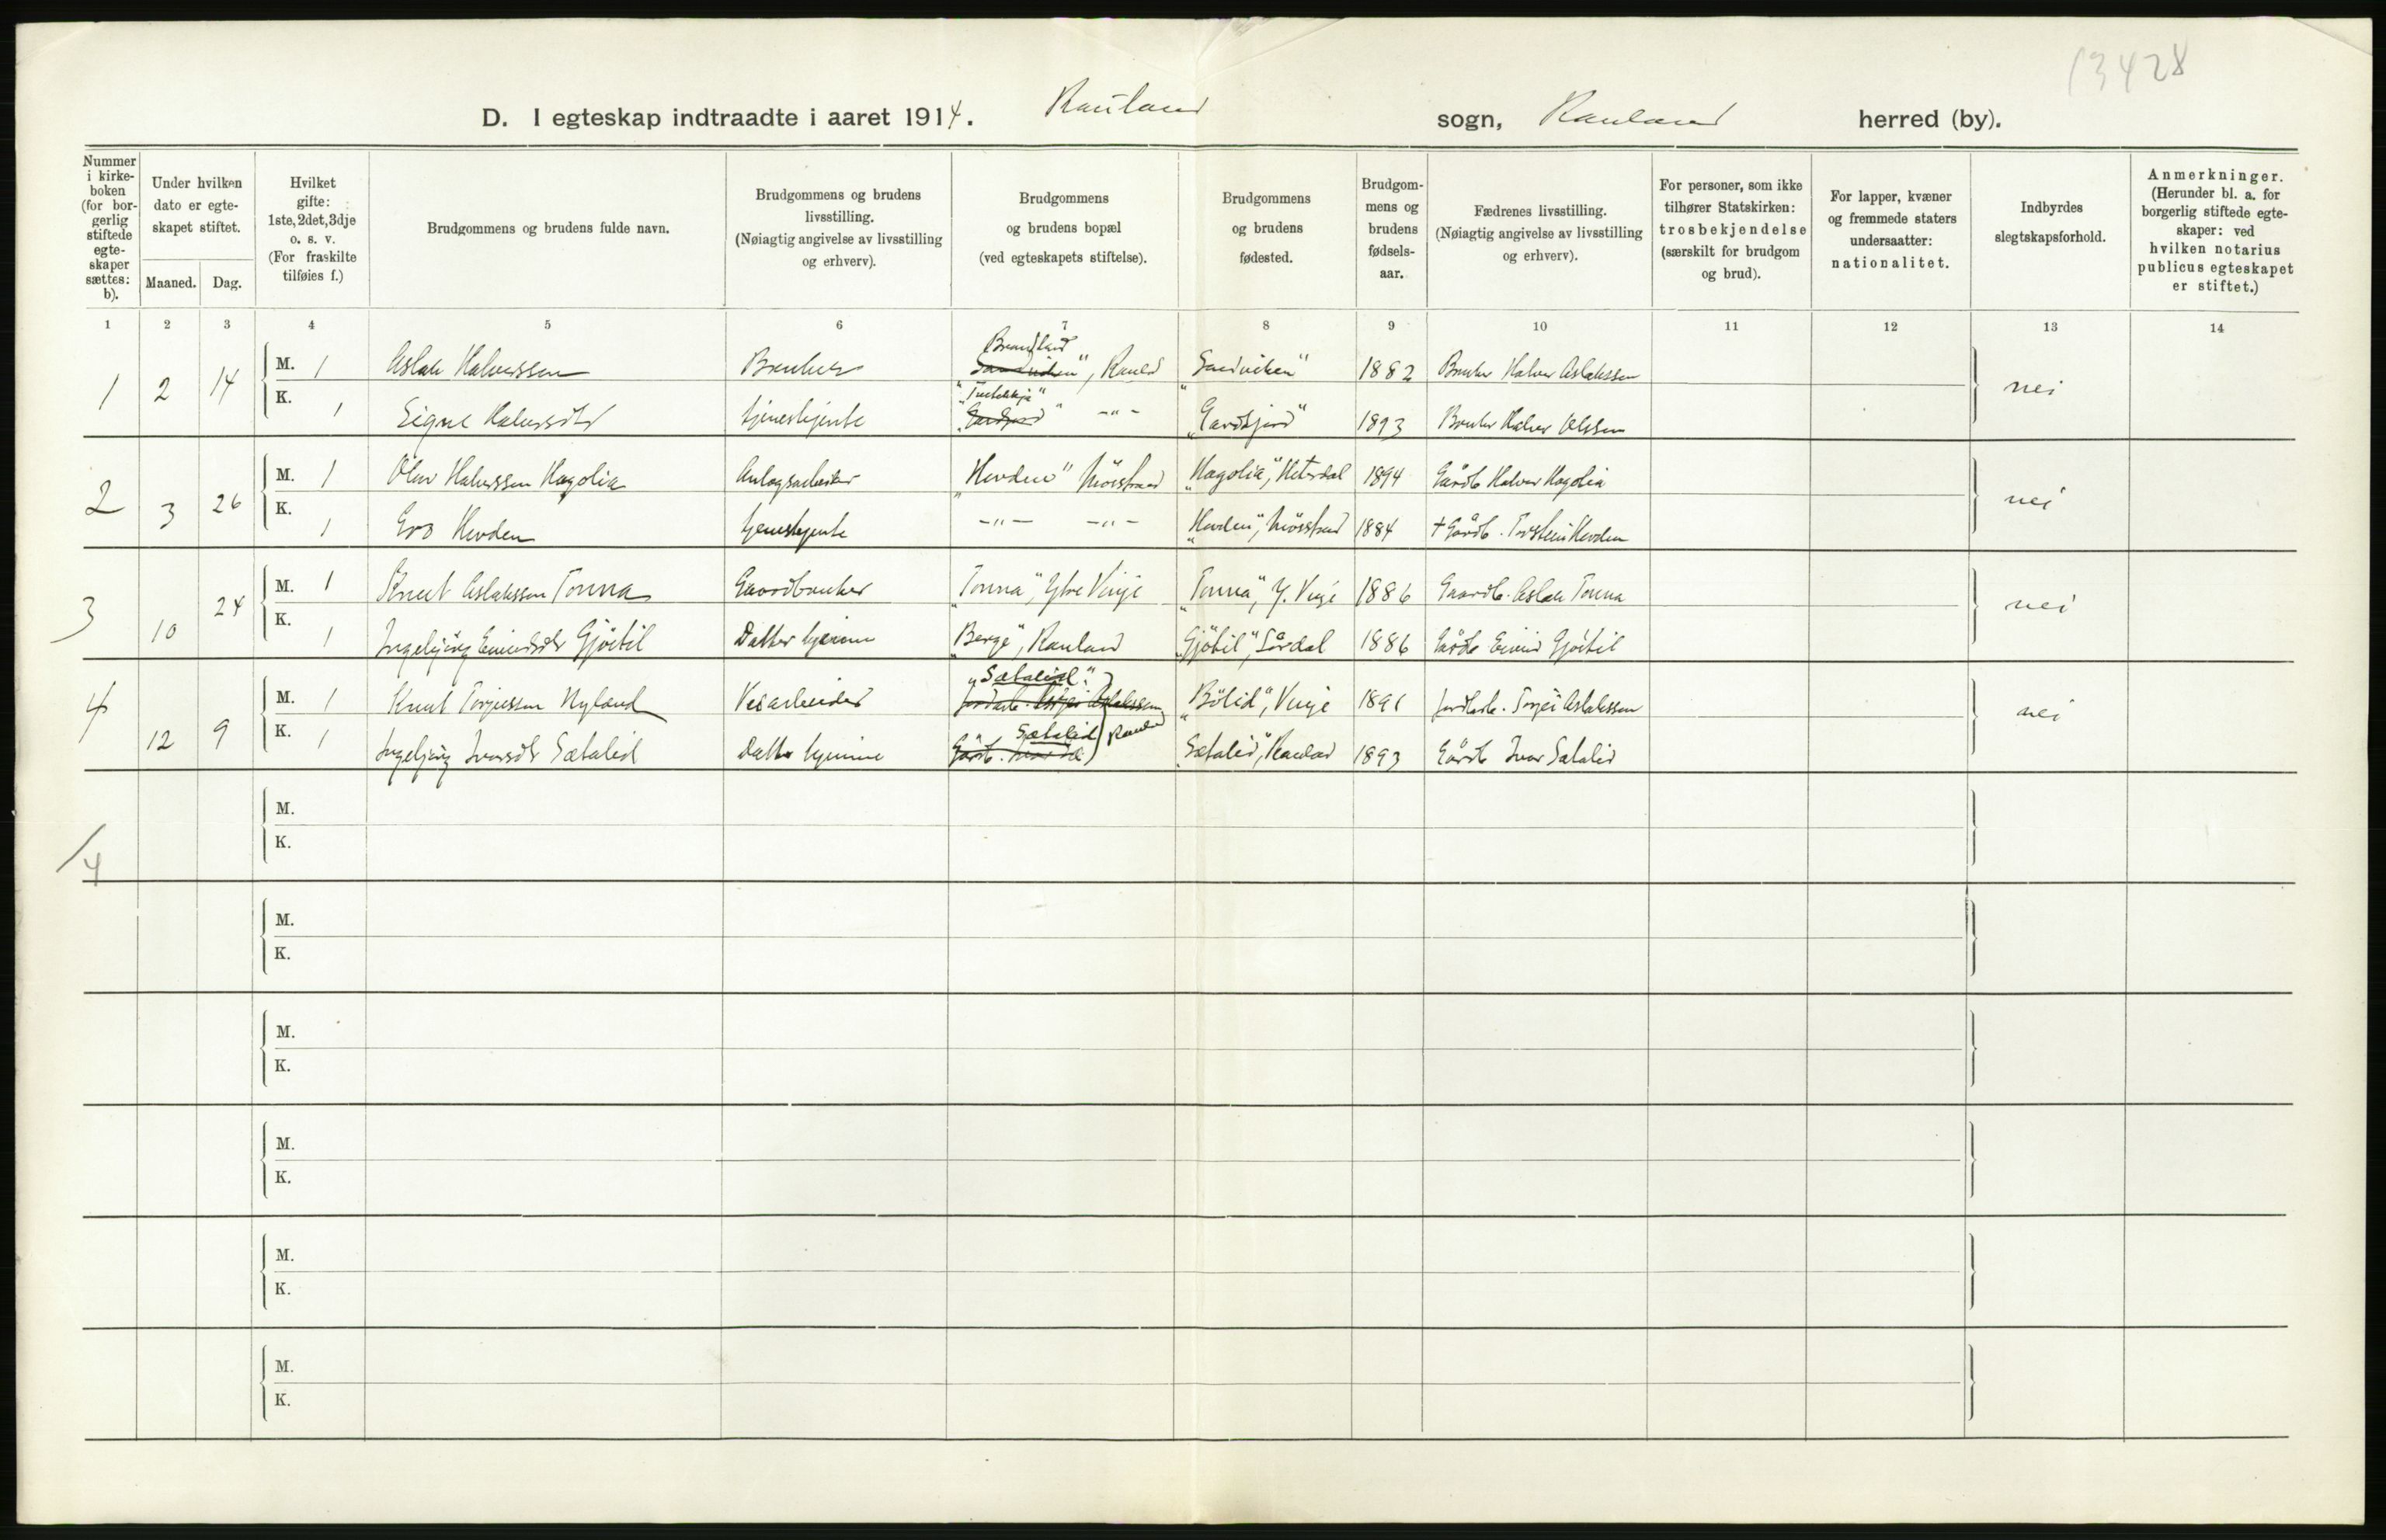 13428
D. I egteskap indtraadte i aaret 1914. Rauland sogn, Rauland herred (by).
Nummer i kirke-boken (for bor-gerlig stiftede egte-skaper sættes: b).
Under hvilken dato er egte-skapet stiftet.
Maaned. Dag.
Hvilket gifte: 1ste, 2det, 3dje o. s. v. (For fraskilte tilføies f.)
Brudgommens og brudens fulde navn.
Brudgommens og brudens livsstilling. (Nøiagtig angivelse av livsstilling og erhverv).
Brudgommens og brudens bopæl (ved egteskapets stiftelse).
Brudgommens og brudens fødested.
Brudgom-mens og brudens fødsels-aar.
Fædrenes livsstilling. (Nøiagtig angivelse av livsstilling og erhverv).
For personer, som ikke tilhører Statskirken: trosbekjendelse (særskilt for brudgom og brud).
For lapper, kvæner og fremmede staters undersaatter: nationalitet.
Indbyrdes slegtskapsforhold.
Anmerkninger. (Herunder bl. a. for borgerlig stiftede egte-skaper: ved hvilken notarius publicus egteskapet er stiftet.)
1 2 3 4 5 6 7 8 9 10 11 12 13 14
1 2 14 M. 1 Aslak Halvorssen Bruker Sandviken", Rauld "Sandviken" 1882 Bruker Halvor Aslakssen nei
K. 1 Signe Halvorsdtr tjenestejente -"- "Gardsjord" 1893 Bruker Halvor Olssen
2 3 26 M. 1 Olav Halvorssen Hagolia Anlagsarbeider "Hovden" Mösstrand "Hagolia", Hiterdal 1894 Gårdb Halvor Hagolia nei
K. 1 Gro Hovden tjenestejente -"- -"- "Hovden", Mösstrand 1884 + Gårdb. Torstein Hovden
3 10 24 M. 1 Knut Aslakssen Tonna Gaardbruker "Tonna", Ytre Vinje "Tonna", Y. Vinje 1886 Gaardb. Aslak Tonna nei
K. 1 Ingebjörg Eivindsdtr Gjötil Datter hjemme "Berge", Rauland "Gjötil", Lårdal 1886 Gårdb Eivind Gjötil
"Sætalid"
4 12 9 M. 1 Knut Torjussen Nyland Veiarbeider "Bölid", Vinje 1891 Jordarb. Torjei Aslakssen nei
Sætalid Rauland
K. 1 Ingebjörg Ivarsdtr Sætalid Datter hjemme Gårdb. "Sætalid", Rauland 1893 Gårdb Ivar Sætalid
M.
K.
/4
M.
K.
M.
K.
M.
K.
M.
K.
M.
K.